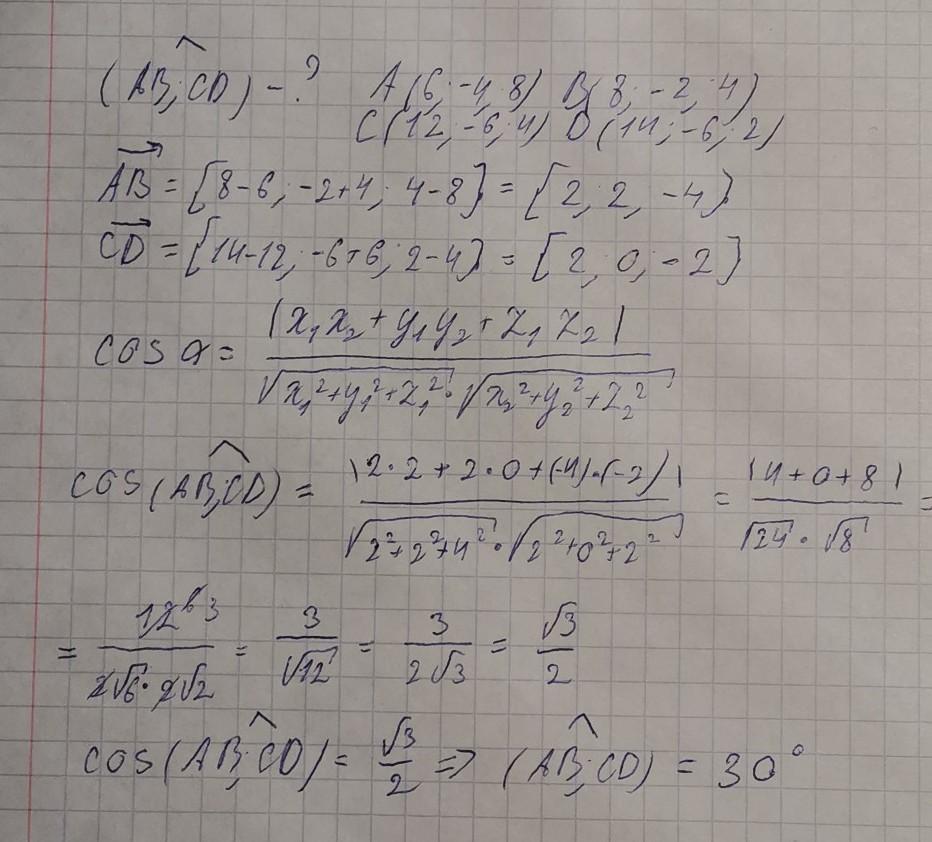 (AB;^CD) - ? A(6; -4; 8) B(8; -2; 4)
C(12; -6; 4) D(14; -6; 2)
AB→ = {8-6; -2+4; 4-8} = {2; 2; -4}
CD→ = {14-12; -6+6; 2-4} = {2; 0; -2}
cos α = |x₁x₂ + y₁y₂ + z₁z₂| / (√(x₁²+y₁²+z₁²) · √(x₂²+y₂²+z₂²))
cos(AB;^CD) = |2·2 + 2·0 + (-4)·(-2)| / (√(2²+2²+4²) · √(2²+0²+2²)) = |4+0+8| / (√24 · √8) =
= 12 6 3 / (2√6 · 2√2) = 3/√12 = 3/(2√3) = √3/2
cos(AB;^CD) = √3/2 => (AB;^CD) = 30°